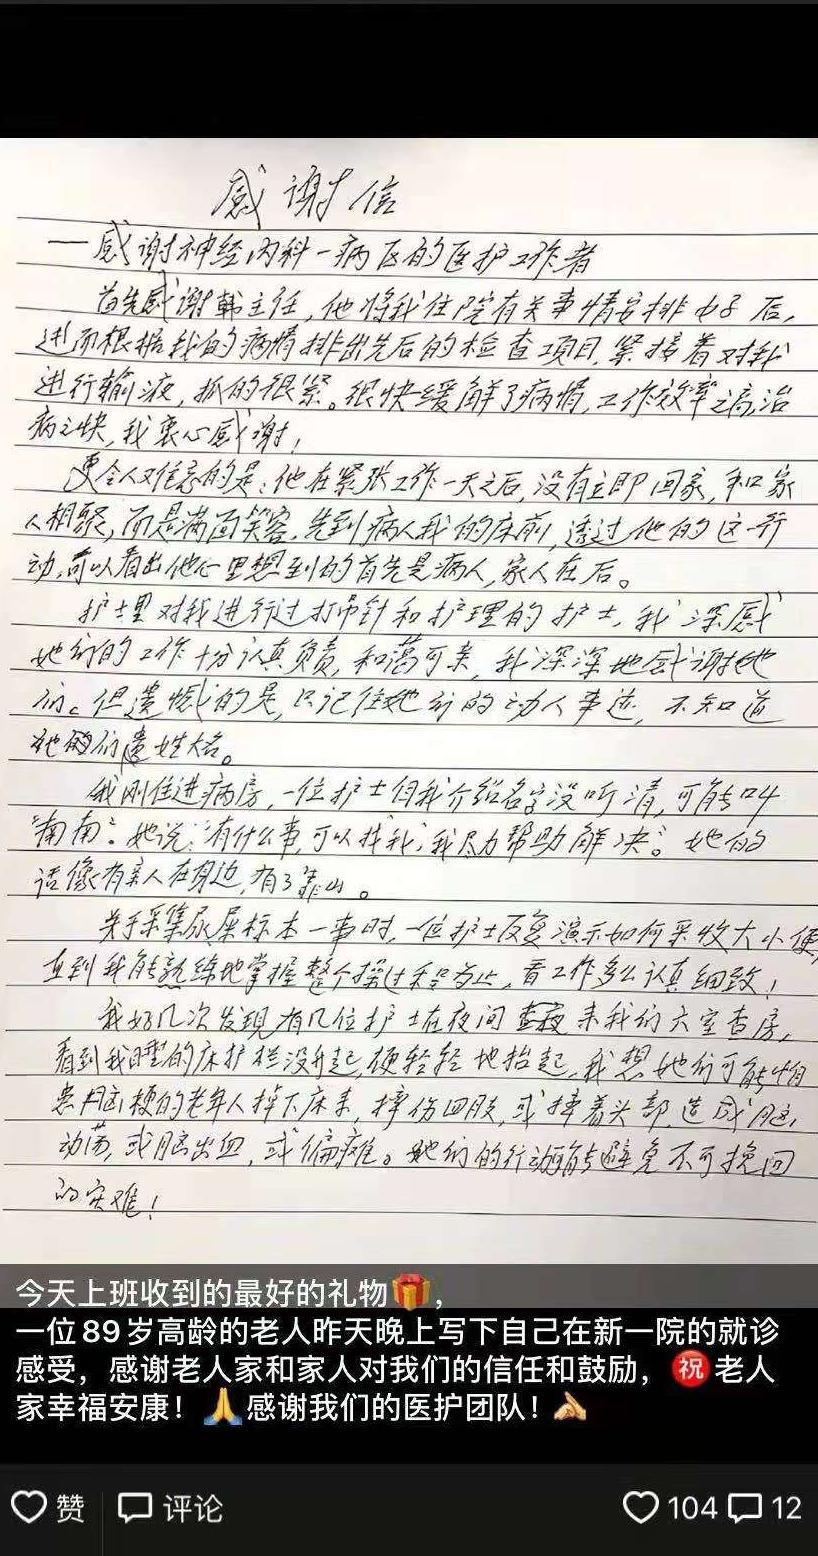 感谢信
一感谢神经内科一病区的医护工作者
首先感谢韩主任，他将我住院有关事情安排好后，
进而根据我的病情排出先后的检查项目，紧接着对我
进行输液，抓的很紧。很快缓解了病情，工作效率之高治
病之快，我衷心感谢！
更令人难忘的是：他在紧张工作一天之后，没有立即回家，和家
人相聚，而是满面笑容，先到病人我的床前，透过他的这一行
动，可以看出他心里想到的首先是病人，家人在后。
护士里对我进行过打吊针和护理的护士，我深感
她们的工作十分认真负责，和蔼可亲，我深深地感谢她
们。但遗憾的是，只记住她们的动人事迹，不知道
她们贵姓大名。
我刚住进病房，一位护士但我介绍名字没听清，可能叫
“南南”。她说：“有什么事，可以找我，我尽力帮助解决”。她的
话像有亲人在身边，有了靠山。
关于采集尿屎标本一事时，一位护士反复演示如何采收大小便，
直到我能熟练地掌握整个操过程为止，看工作多么认真细致！
我好几次发现有几位护士在夜间来我们六室查房，
看到我睡的床护栏没升起，便轻轻地抬起，我想她们可能怕
患脑梗的老年人掉下床来，摔伤四肢，或摔着头部，造成脑
动荡，或脑出血，或偏瘫。她们的行动能避免不可挽回
的灾难！
今天上班收到的最好的礼物🎁，
一位89岁高龄的老人昨天晚上写下自己在新一院的就诊
感受，感谢老人家和家人对我们的信任和鼓励，㊗️老人
家幸福安康！🙏感谢我们的医护团队！👏
赞 评论 104 12